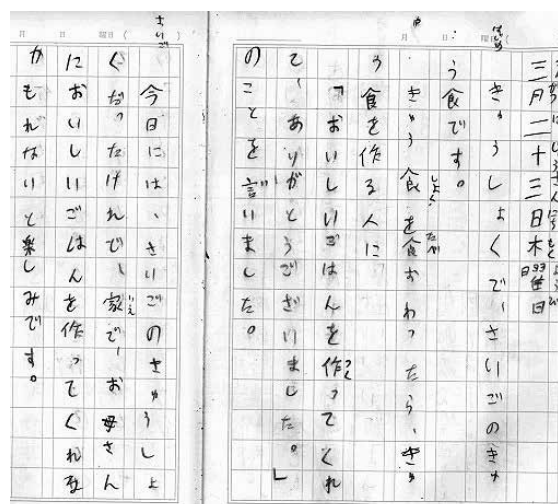 三月二十三日木曜日
はじめ
きゅうしょくで、さいごのきゅ
う食です。
中
きゅう食を食おわったら、きゅ
う食を作る人に
「おいしいごはんを作ってくれ
て、ありがとうございました。」
のことを言いました。
さいご
今日には、さいごのきゅうしょ
くだったけれで、家で、お母さん
においしいごはんを作ってくれな
かもれないと楽しみです。